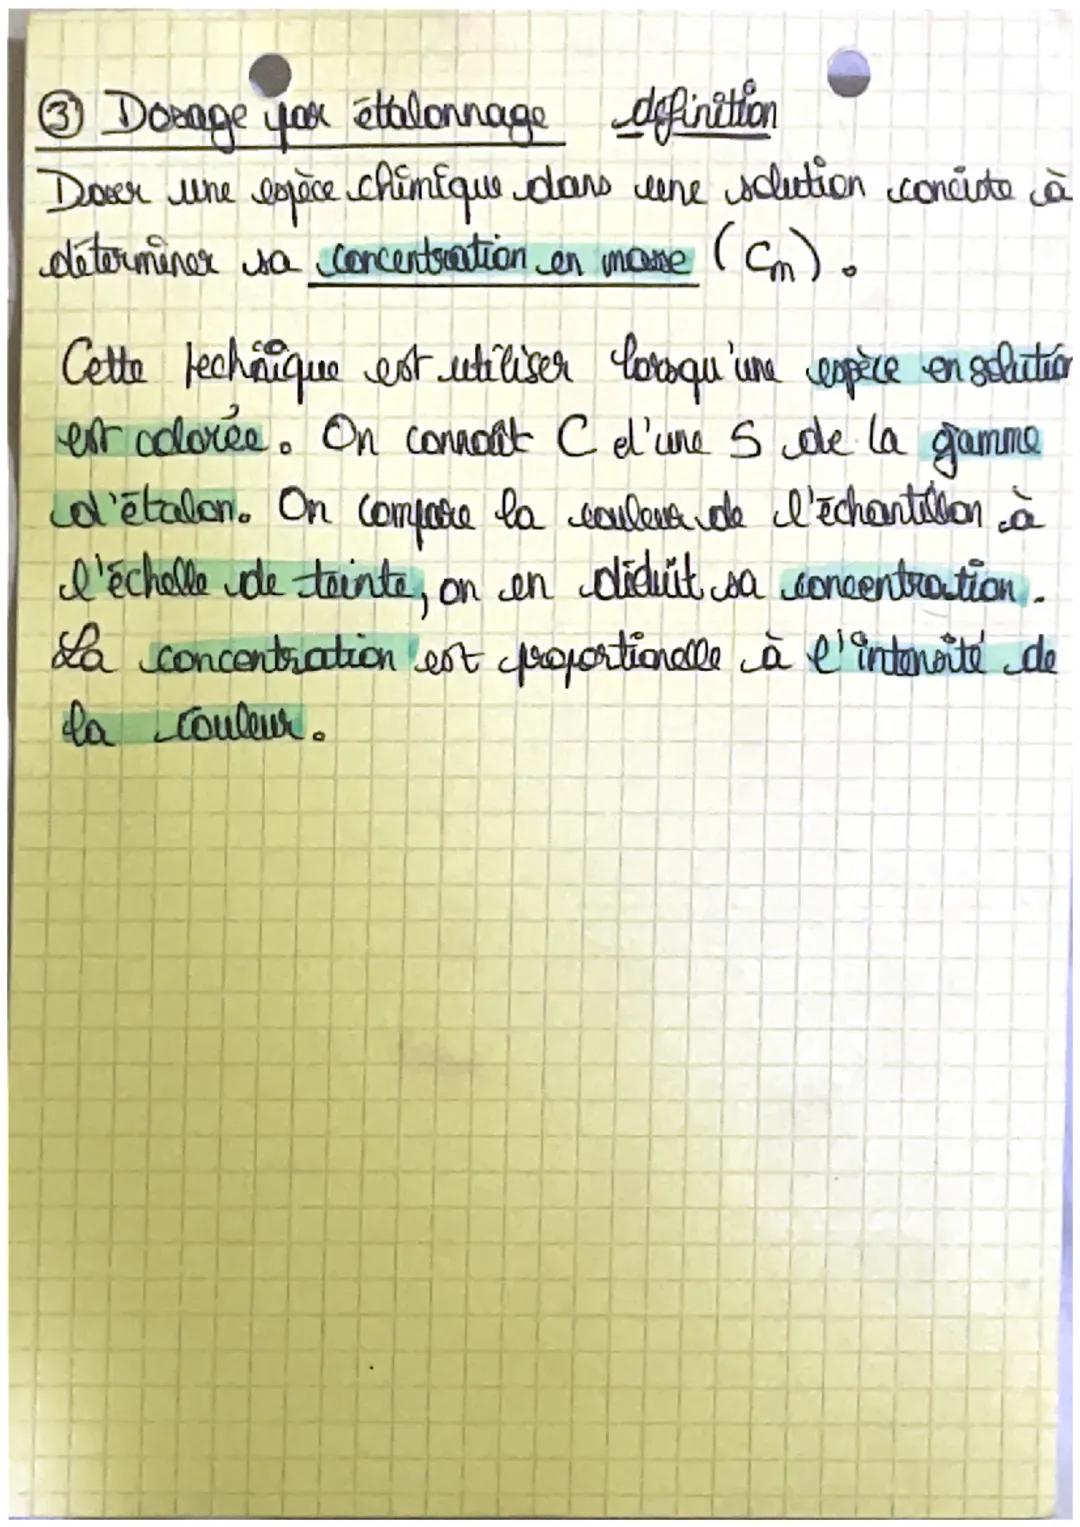 ③ Dosage par étallonnage définition
Doser une espèce chimique dans une solution consiste à
déterminer sa concentration en masse (Cm).
Cette technique est utiliser lorsqu'une espèce en solution
est colorée. On connaît C d'une S de la gamme
d'étalon. On compare la couleur de l'échantillon à
l'échelle de teinte, on en déduit sa concentration.
La concentration est proportionelle à l'intensité de
la couleur.